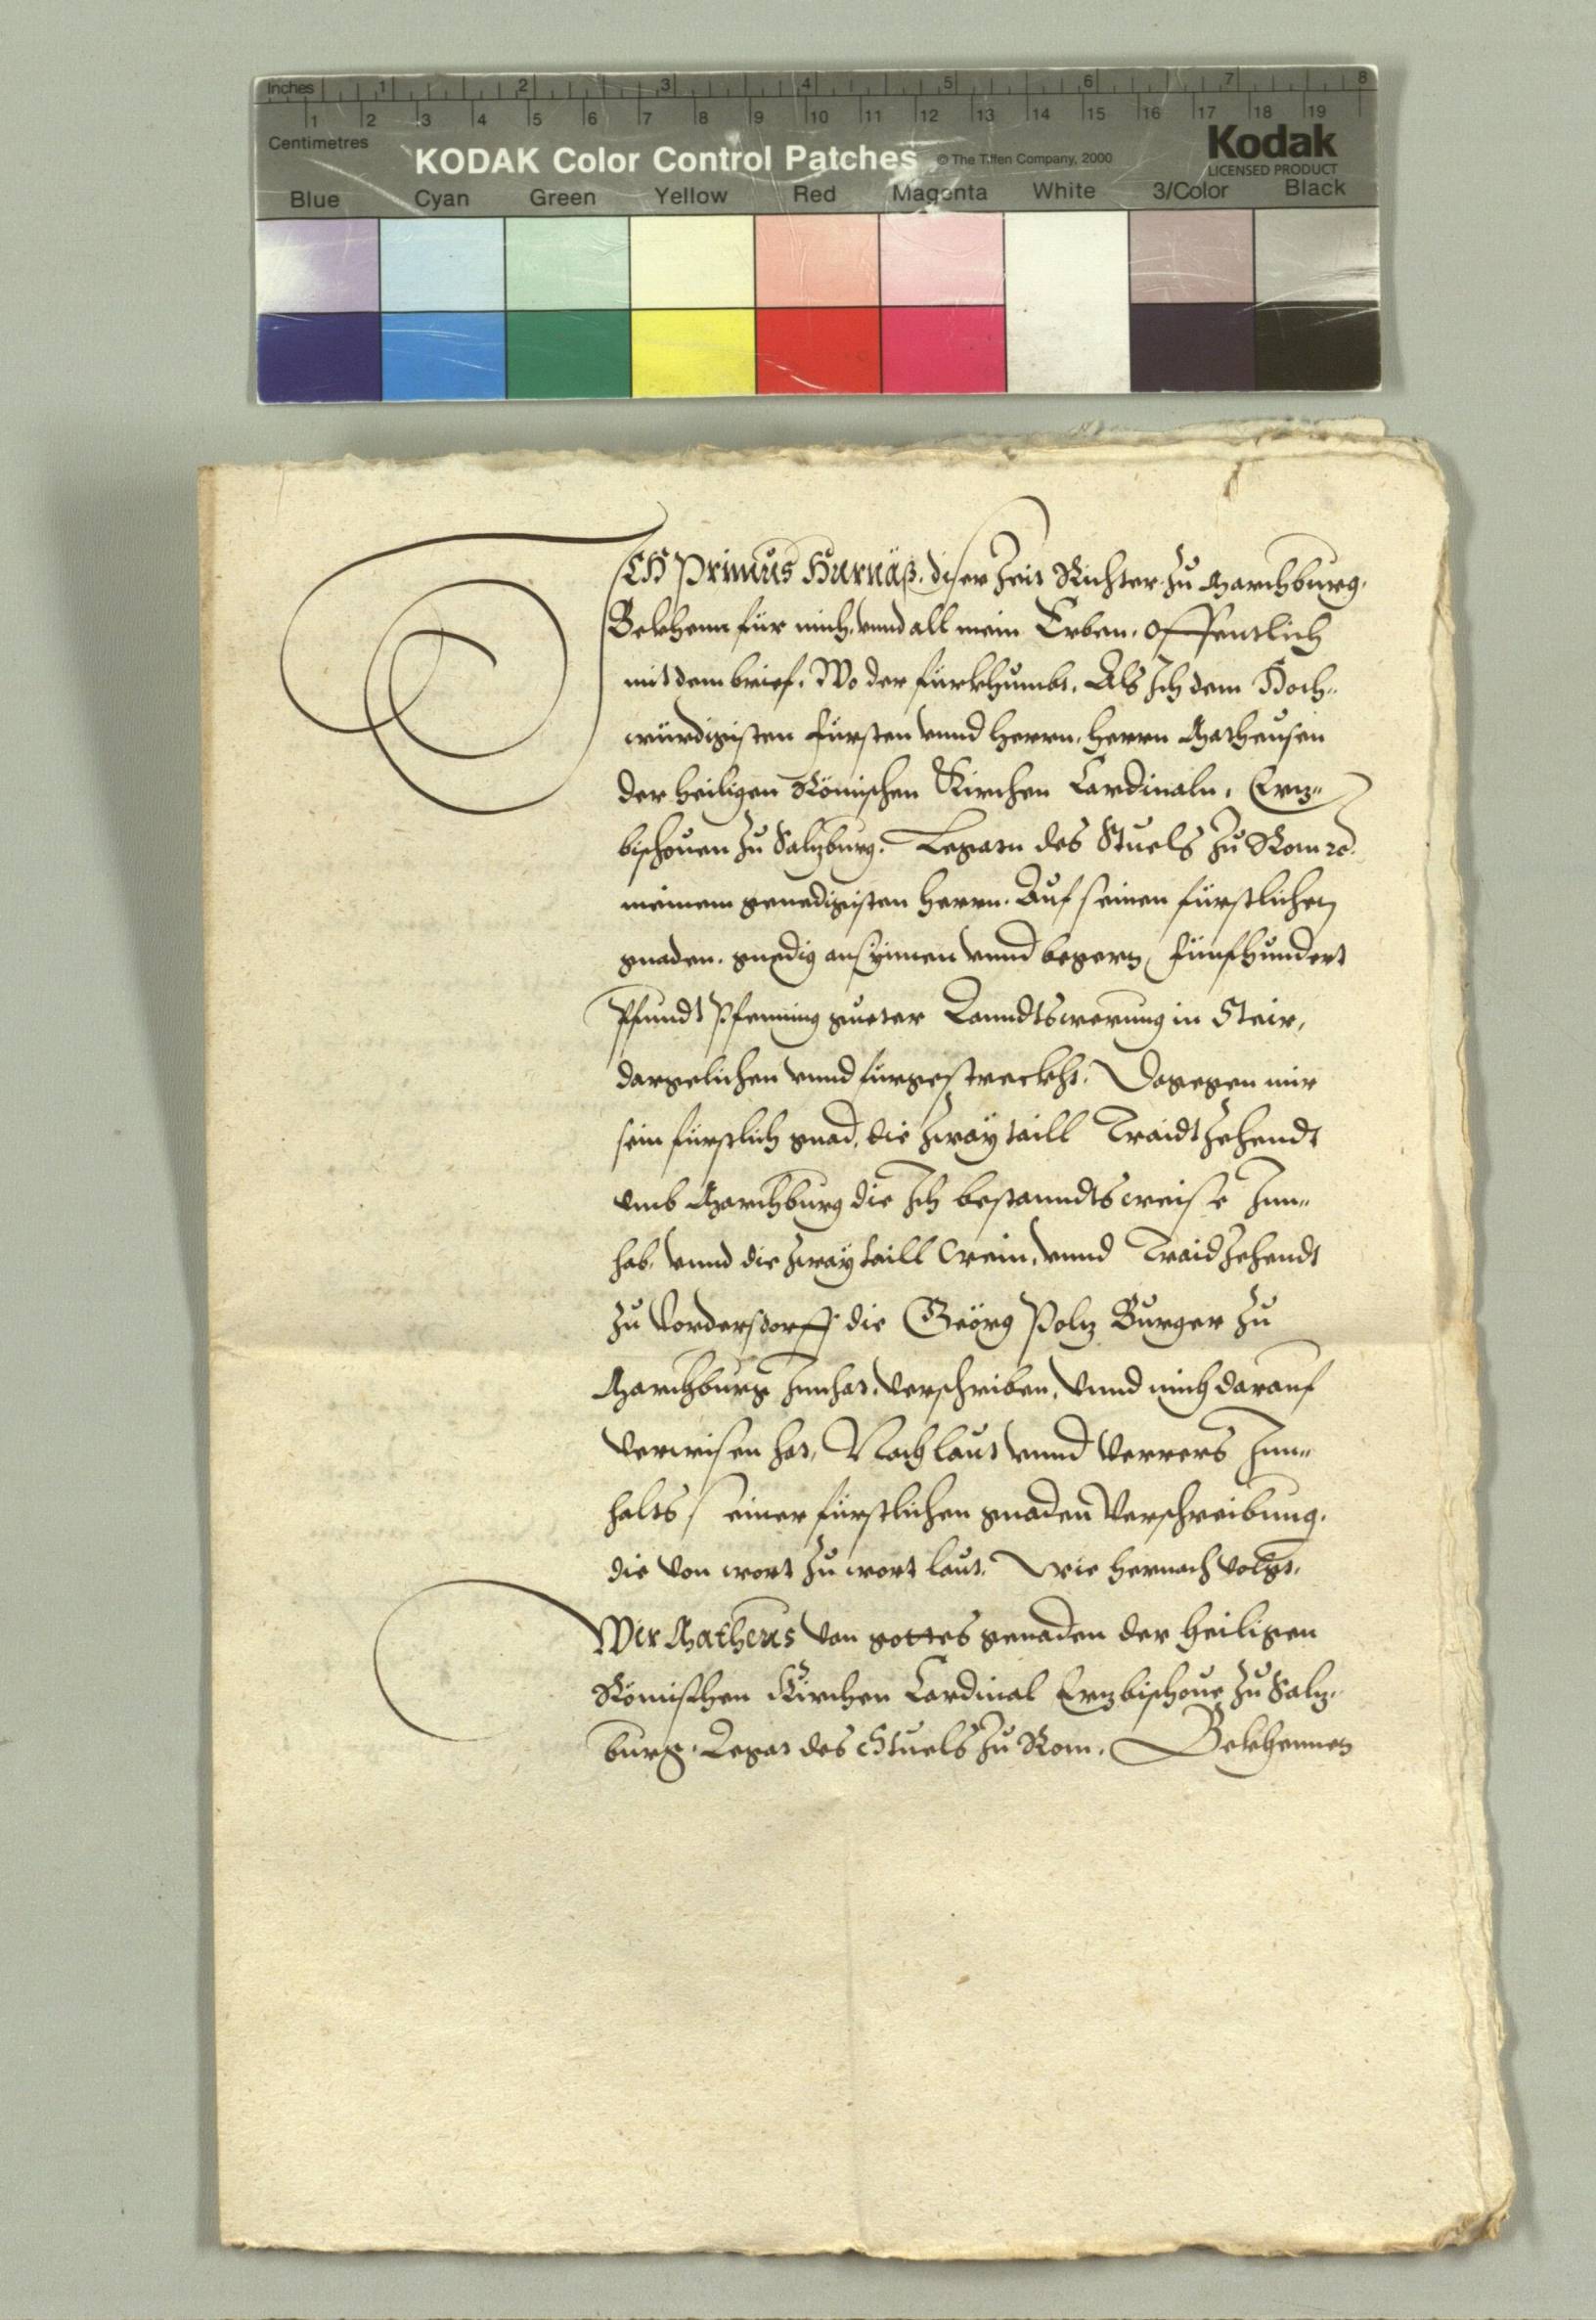 Inches 1 2 3 4 5 6 7 8
1 2 3 4 5 6 7 8 9 10 11 12 13 14 15 16 17 18 19
Centimetres
KODAK Color Control Patches © The Tiffen Company, 2000 Kodak
LICENSED PRODUCT
Blue Cyan Green Yellow Red Magenta White 3/Color Black
ICH Primus Hurnäß. diser Zeit Richter zu Marchburg.
Bekhenn für mich. vnnd all mein Erben. offentlich
mit dem brief. Wo der fürkhumbt. Als Ich dem Hoch-
würdigisten Fürsten vnnd Herrn. Herrn Matheusen
der heiligen Römischen Kirchen Cardinaln. Ertz-
bischouen zu Saltzburg. Legatn des Stuels zu Rom rc.
meinem genedigisten Herrn. Auf seinen fürstlichen
gnaden. gnedig ansynnen vnnd begern, Fünfhundert
Pfundt Pfenning gueter Lanndtswerung in Steir,
dargelichen vnnd fürgestreckht. Dagegen mir
sein fürstlich gnad. die zway taill Traidt Zehendt
vmb Marchburg die Ich bestanndtsweise Inn-
hab. vnnd die zway taill Wein, vnnd Traid Zehendt
zu Lordersdorff die Geörg Poltz Burger zu
Marchburg Innhat. verschriben. vnnd mich darauf
verwisen hat, Nach laut vnnd verrers Inn-
halts seiner fürstlichen gnaden verschreibung.
die von wort zu wort laut. Wie hernach volgt.
Wir Matheus von gottes genaden der heiligen
Römischen Kirchen Cardinal Ertzbischoue zu Saltz-
burg. Legat des Stuels zu Rom. Bekhennen